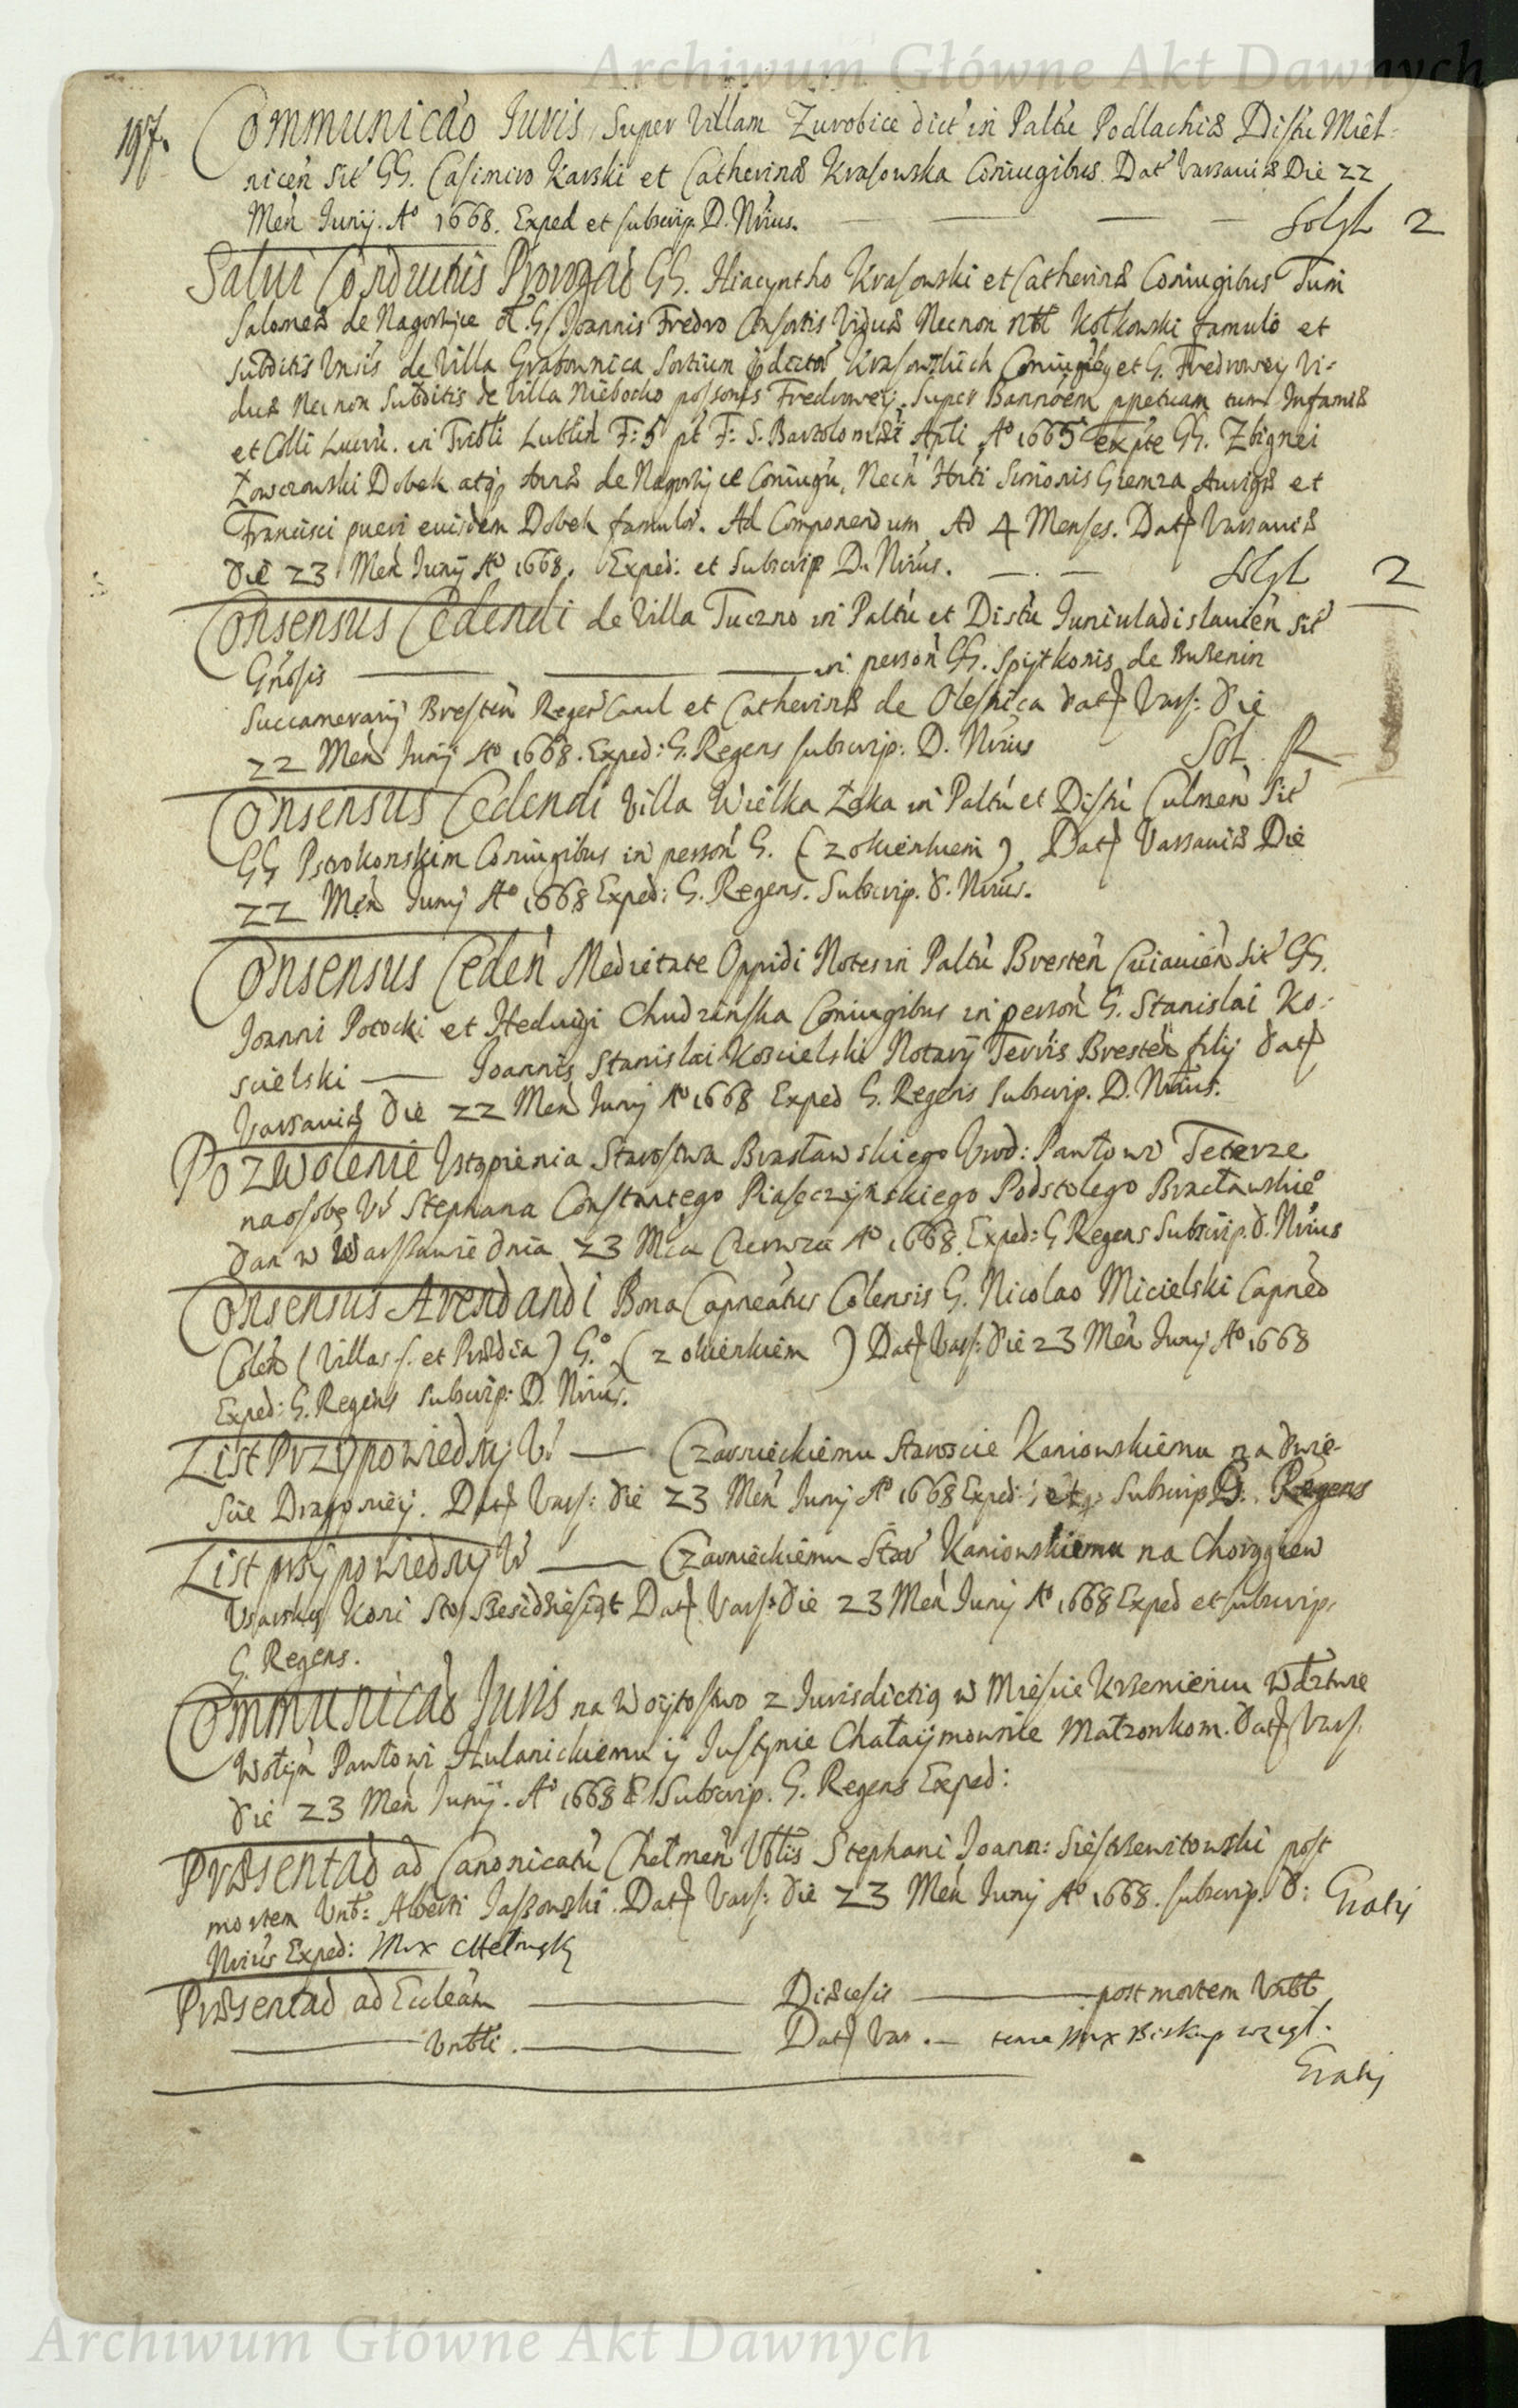 Archiwum Główne Akt Dawnych
197.
Communicao Iuris Super Villam Zurobice dict in Paltu Podlachiæ Distu Miel-
nicen sit GG. Casimiro Karski et Catherinæ Krasowska Coniugibus. Dat Varsaviæ Die 22
Men Junij. Aº 1668. Exped et subscrip. D. Nrius. Sol gl 2
Salvi Conductus Prorogao GG. Hiacyntho Krasowski et Catherinæ Coniugibus Tum
Salomeæ de Nagorlyce ol. G. Joannis Fredro Consortis Viduæ Necnon Kotkowski famulo et
subditis de Villa Grabownica Sortium Krasowskich et G. Fredrowey Vi-
duæ Nec non Subditis de Villa Niebocko possonis Fredrowey. Super Bannoem ppetuam tum Infamiæ
et Colli Lucru. in Tribli Lublin F: 5 pt F: S. Bartolomæi Apli Aº 1665 expte GG. Zbignei
Dobek atq Annæ de Nagorlyce Coniugu, Necn Simonis Aurigæ et
Francisci pueri eiusdem Dobek famulor. Ad Componendum Ad 4 Menses. Dat Varsaviæ
die 23 Men Junij Aº 1668. Exped: et Subscrip D. Nrius. Sol gl 2
Consensus Cedendi de Villa Tuczno in Paltu et Distu Juniuladislauien sit
Gnosis in person GG. Spytkonis de Buzenin
Succamerarij Bresten et Catherinæ de Olesnica dat Vars: Die
22 Men Junij Aº 1668. Exped: G. Regens subscrip: D. Nrius Sol. R
Consensus Cedendi Villa Wielka Łąka in Paltu et Distu Culmen sit
GG Pstrokonskim Coniugibus in person G. (z okienkiem). Dat Varsaviæ Die
22 Men Junij Aº 1668 Exped: G. Regens. Subscrip. D. Nrius.
Consensus Ceden Medietate Oppidi Notes in Paltu Bresten Cuiauien sit GG.
Joanni Potocki et Hedvigi Chudzinska Coniugibus in person G. Stanislai Ko-
scielski Joannis Stanislai Koscielski Notarij Terris Bresten filij dat
Varsaviæ Die 22 Men Junij Aº 1668 Exped G. Regens subscrip. D. Nrius.
Pozwolenie Vstąpienia Starostwa Bracławskiego Vrod: Pawłowi Teterze
na osobę Vr Stephana Constantego Piaseczynskiego Podstolego Bracławskieo
Dan w Warszawie dnia 23 Mca Czerwca Aº 1668. Exped: G Regens Subscrip. D. Nrius
Consensus Arendandi Bona Capneatus Colensis G. Nicolao Micielski Capneo
Colen (Villas s. et Prædia) Gº. (z okienkiem) Dat Vars: Die 23 Men Junij Aº 1668
Exped: G. Regens subscrip: D. Nrius.
List Przypowiedny Vr Czarnieckiemu Staroscie Kaniowskiemu na dwie-
scie Dragoniey. Dat Vars: die 23 Men Junij Aº 1668 Exped: et Subscrip G. Regens
List przypowiedny Vr Czarnieckiemu Star Kaniowskiemu na Chorągiew
Vsarską Koni Sto Dat Vars: Die 23 Men Junij Aº 1668 Exped et subscrip.
G. Regens.
Communicao Juris na Woijtostwo z Jurisdictią w Miescie Krzemiencu
Wołyn Pawłowi Hulanickiemu ij Justynie Chałaijmownie Małzonkom. Dat Vars.
die 23 Men Junij. Aº 1668 Subscrip. G. Regens Exped:
Præsentao ad Canonicatu Chełmen Vblis Stephani Joann: post
mortem Vnb: Alberti Jaszowski. Dat Vars: die 23 Men Junij Aº 1668. subscrip. D: Gratij
Nrius Exped: Mrx
Præsentao ad Eccleam Diæcesis post mortem Vnbl
Vnbli. Dat Var. Mrx Biskup wziął.
Gratij
Archiwum Główne Akt Dawnych